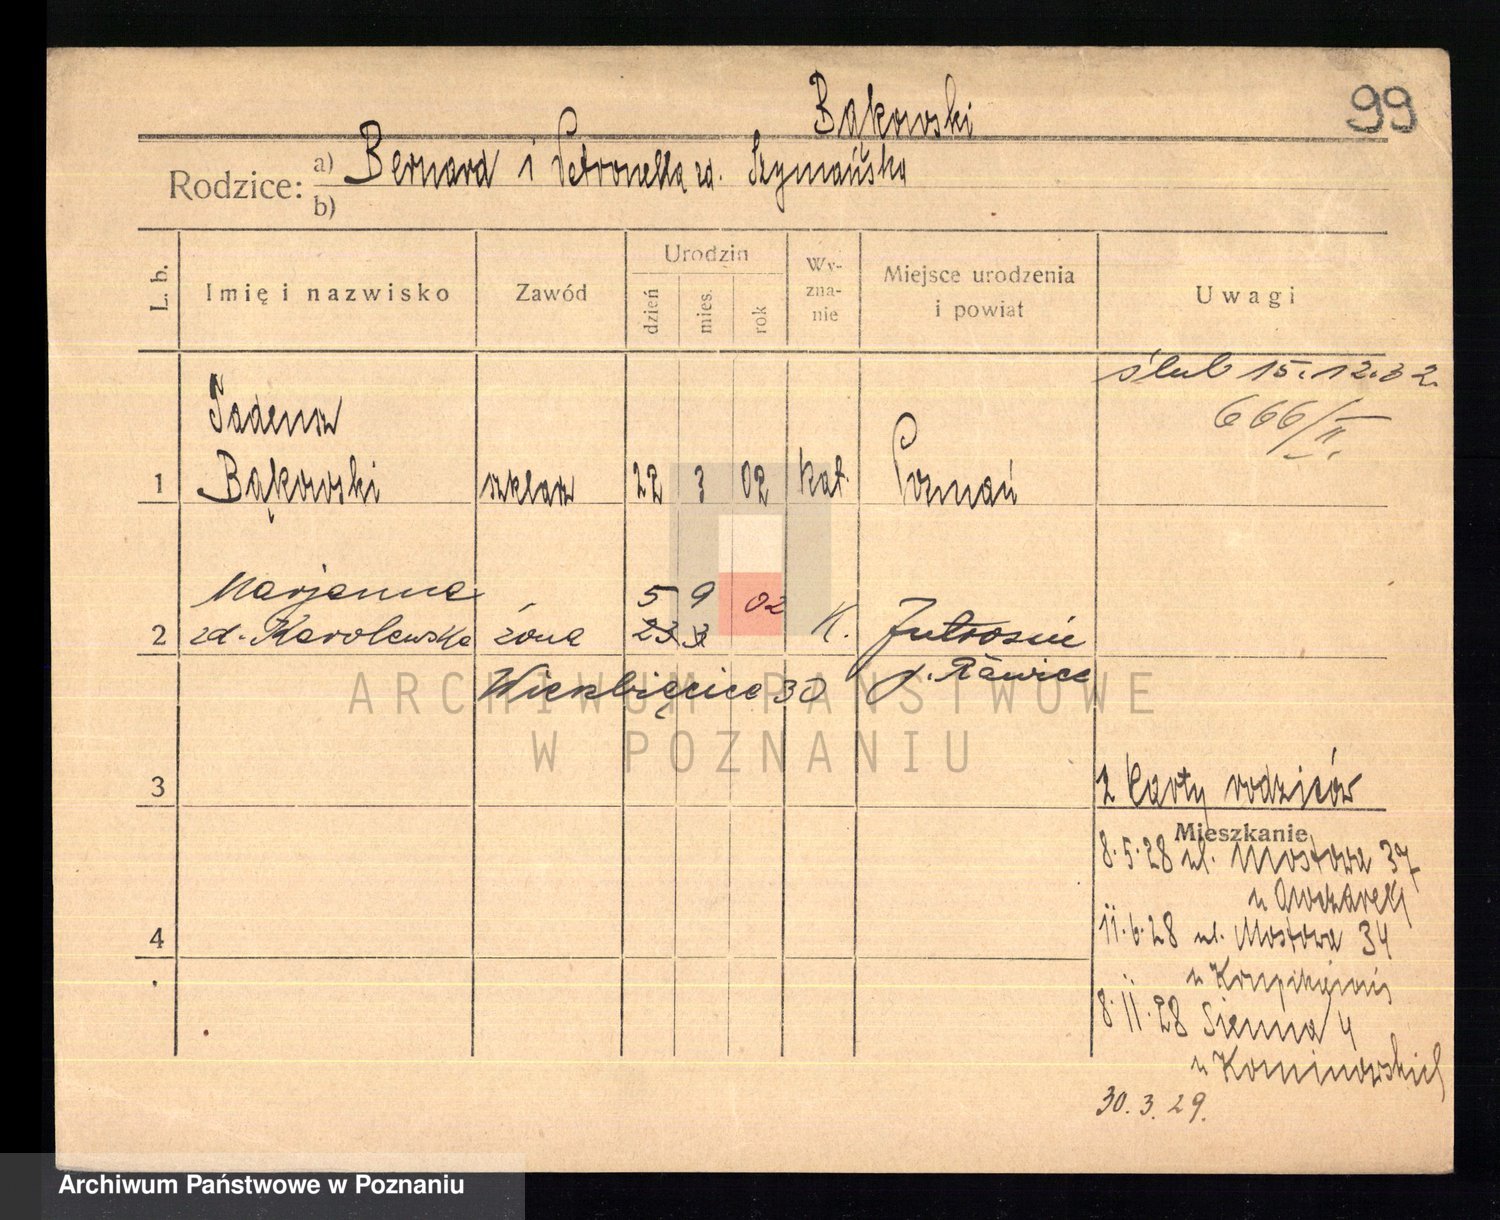 Bąkowski
99
Rodzice:
a) Bernard i Petronella zd. Szymańska
b)
L. b.
Imię i nazwisko
Zawód
Urodzin
dzień
mies.
rok
Wy-
zna-
nie
Miejsce urodzenia
i powiat
Uwagi
ślub 15.12.32.
666/II.
Tadeusz
1 Bąkowski szklarz 22 3 02 kat. Poznań
Marjanna 5 9 02
2 zd. Karolewska żona 23 3 K. Jutrosin
p. Rawicz
30
ARCHIWUM PAŃSTWOWE
W POZNANIU
3
z karty rodziców
Mieszkanie
8.5.28 ul. Mostowa 37
u
4
11.6.28 ul. Mostowa 34
u
8.11.28 Sienna 4
u
30.3.29.
Archiwum Państwowe w Poznaniu